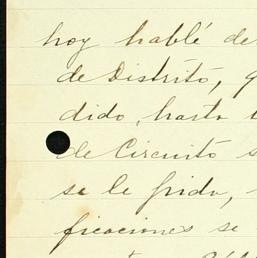 hoy hablé de
de Distrito, q
dido, hasta
de Circuito s
se le pida,
ficaciones se